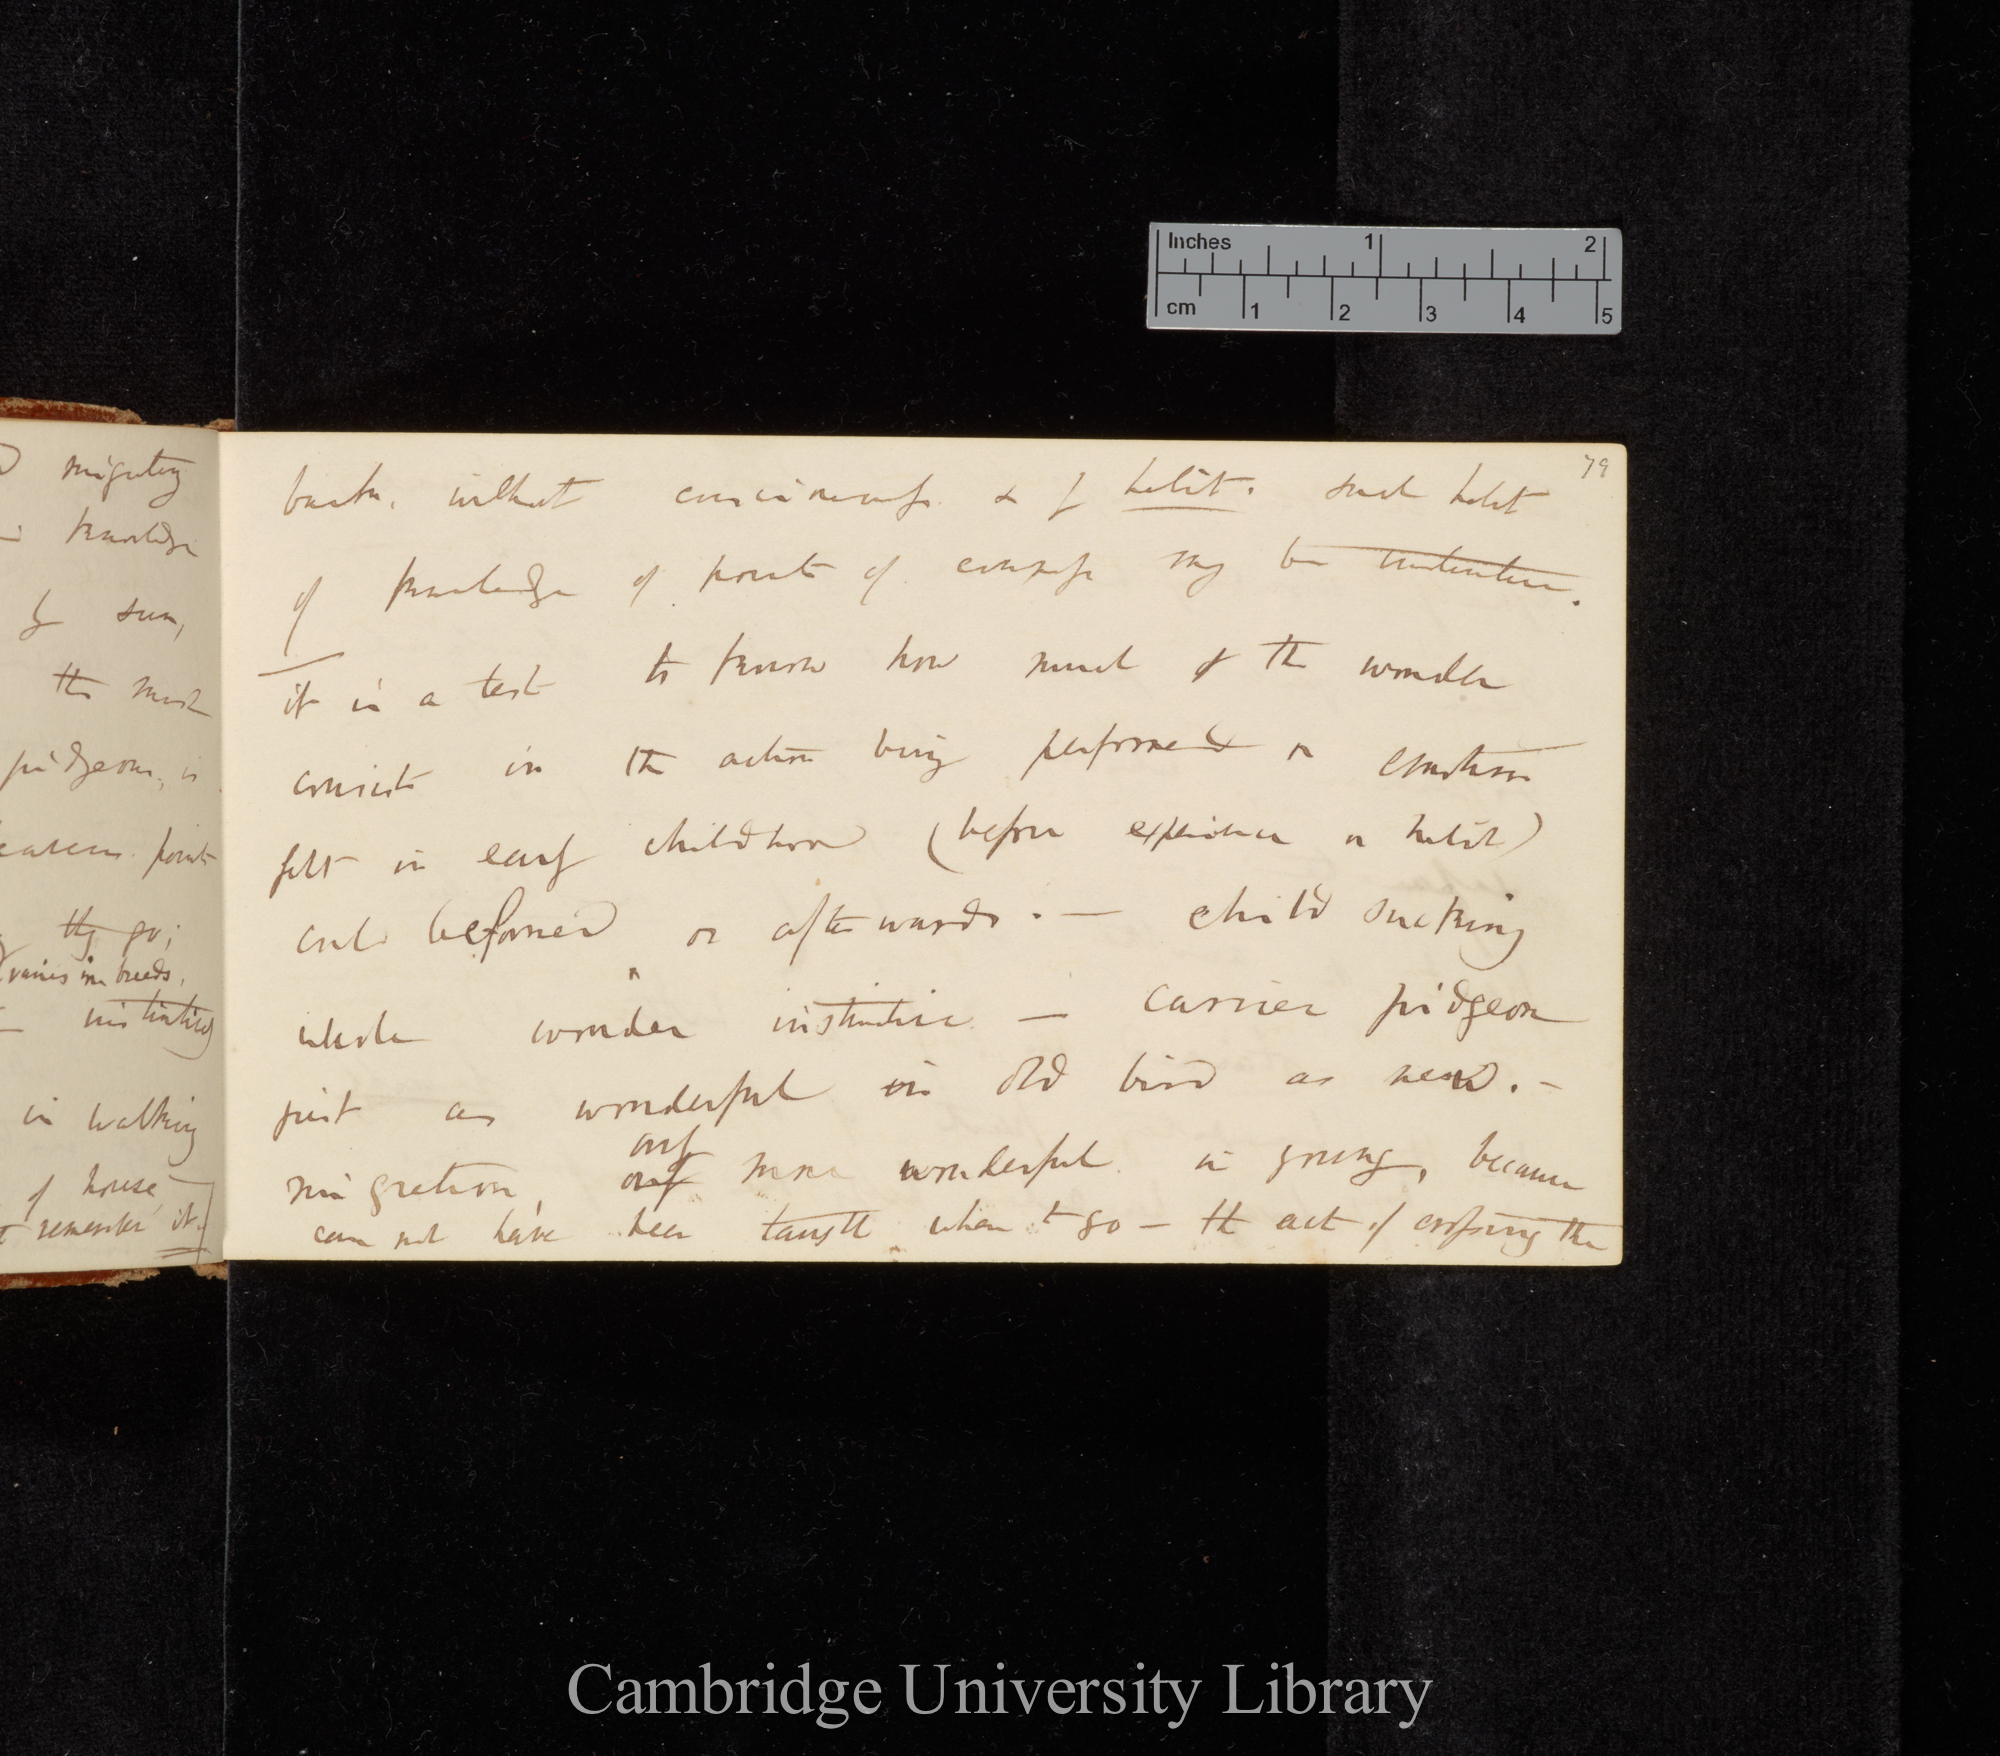 migrating
knowledge
by sun,
the most
pidgeons, is
eastern point
they go;
varies in breeds,
instinctive
in walking
of house
remember it.
79
back, without consciousness & of habit. such habit
of knowledge of points of compass may be instinctive.
it is a test to know how much of the wonder
consists in the action being performed or emotion
felt in early childhood (before experience or habit)
could be formed or afterwards. — child sucking
whole wonder instinctive — carrier pidgeon
just as wonderful in old bird as new. —
only
migration, only more wonderful in young, because
can not have been taught when to go — the act of crossing the
Inches 1 2
cm 1 2 3 4 5
Cambridge University Library